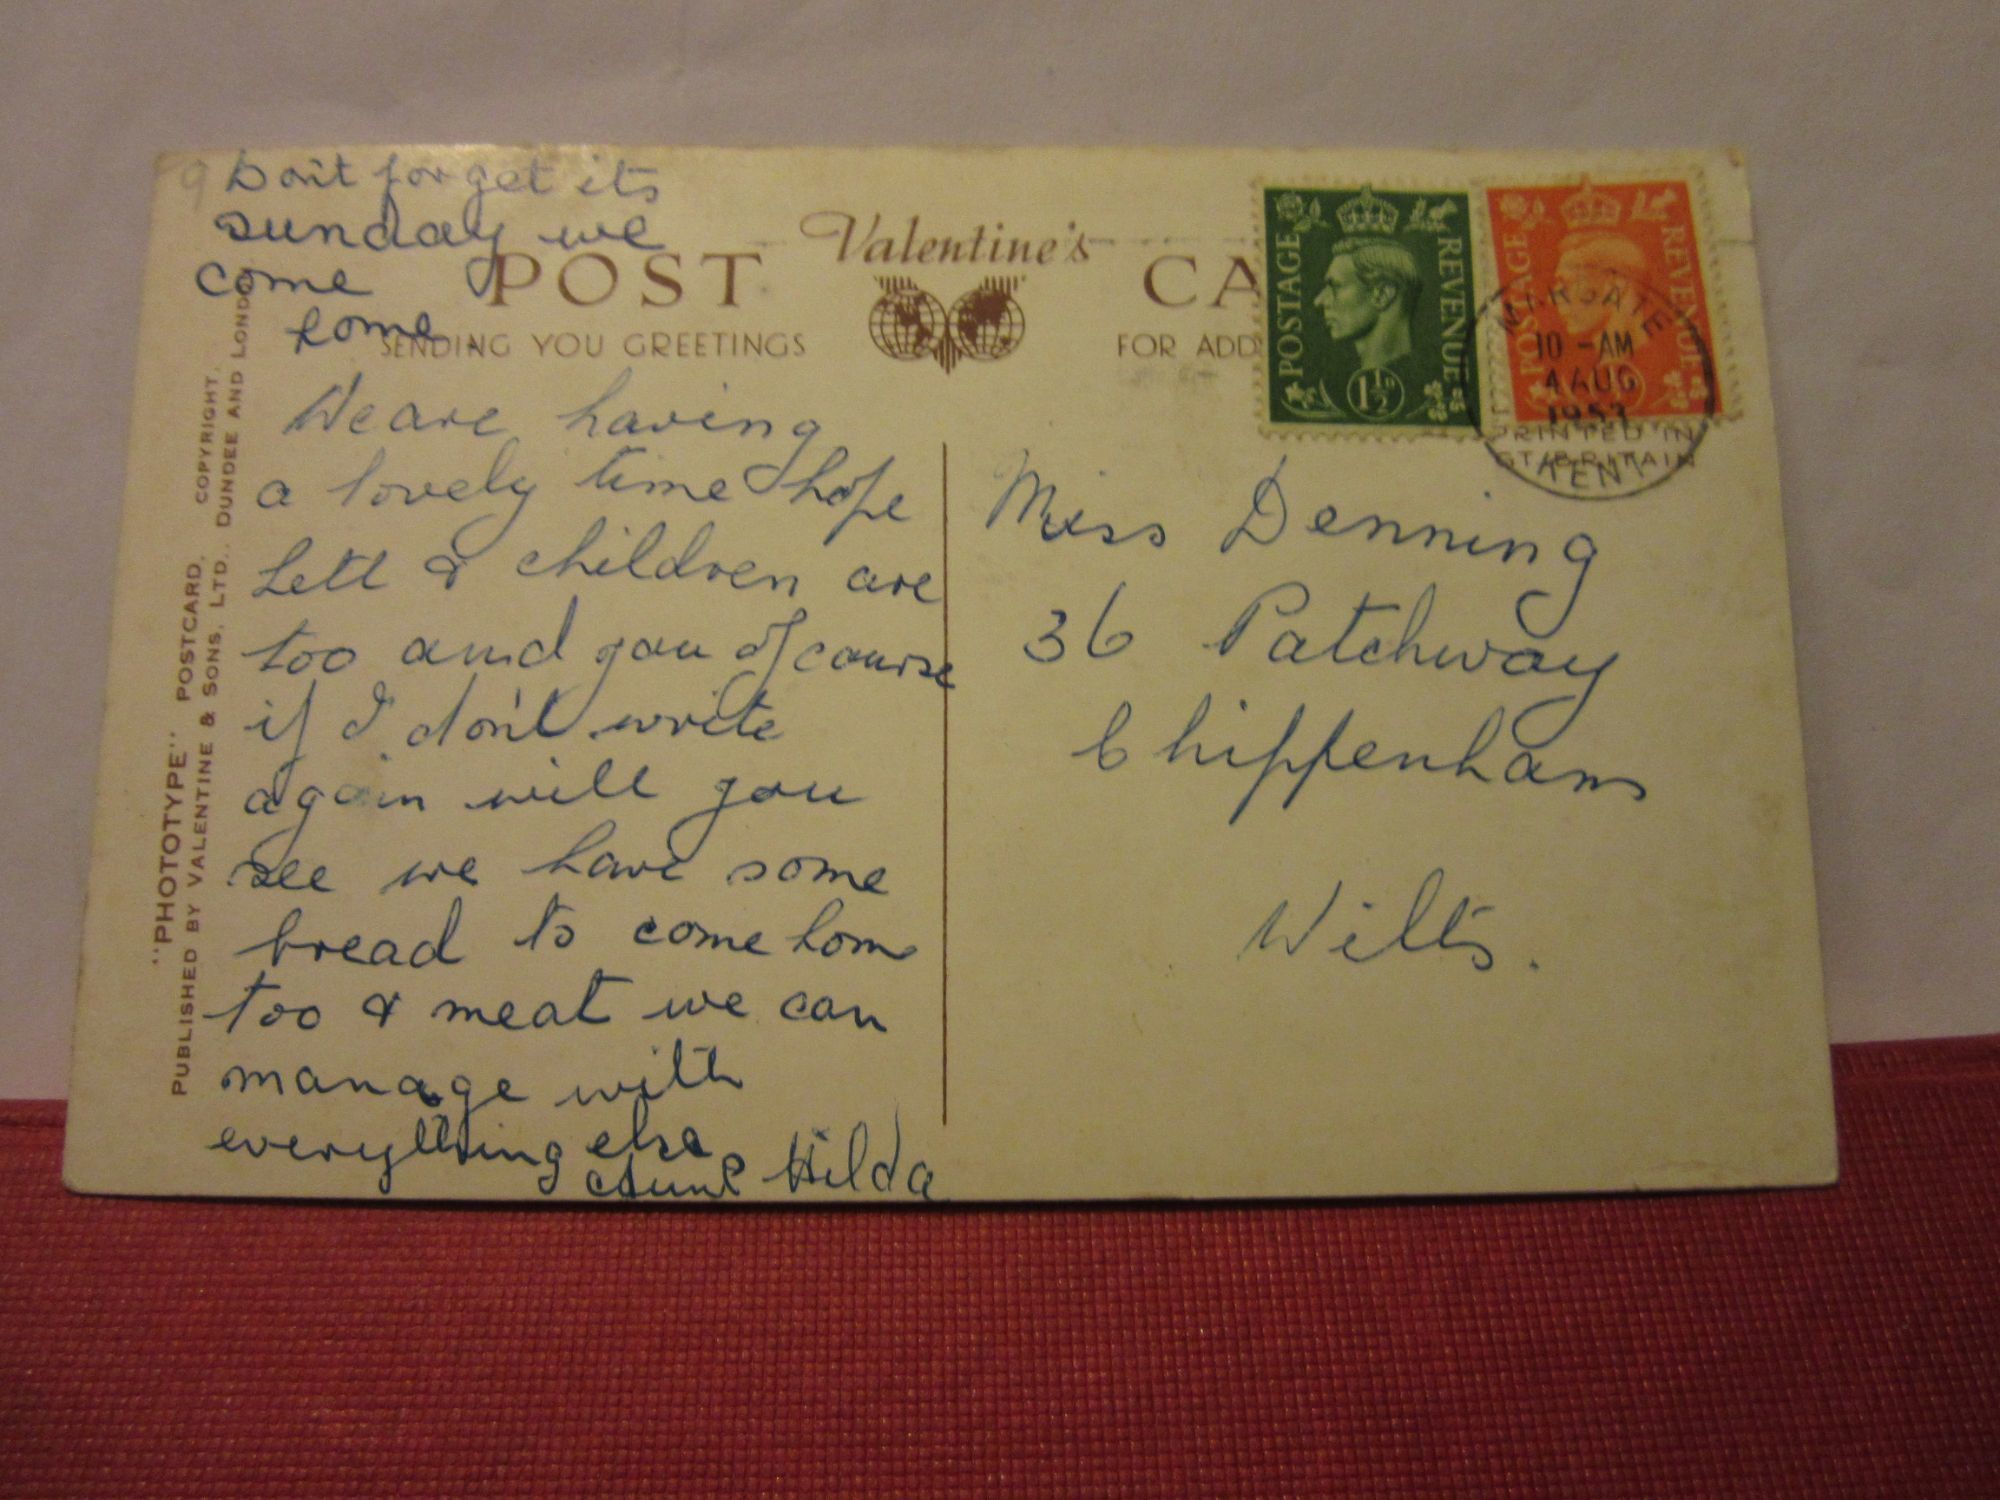 9
Don't forget its
sunday we
come
home.
POST
Valentine's
CA
SENDING YOU GREETINGS
FOR ADD
POSTAGE
REVENUE
1½D
POSTAGE
REVENUE
MARGATE
10 - AM
4 AUG
1953
KENT
PRINTED IN
GT. BRITAIN
We are having
a lovely time hope
Lett & children are
too and you of course
if I don't write
again will you
see we have some
bread to come home
too & meat we can
manage with
everything else
Aunt Hilda
Miss Denning
36 Patchway
Chippenham
Wilts.
"PHOTOTYPE" POSTCARD. COPYRIGHT.
PUBLISHED BY VALENTINE & SONS, LTD., DUNDEE AND LONDON.